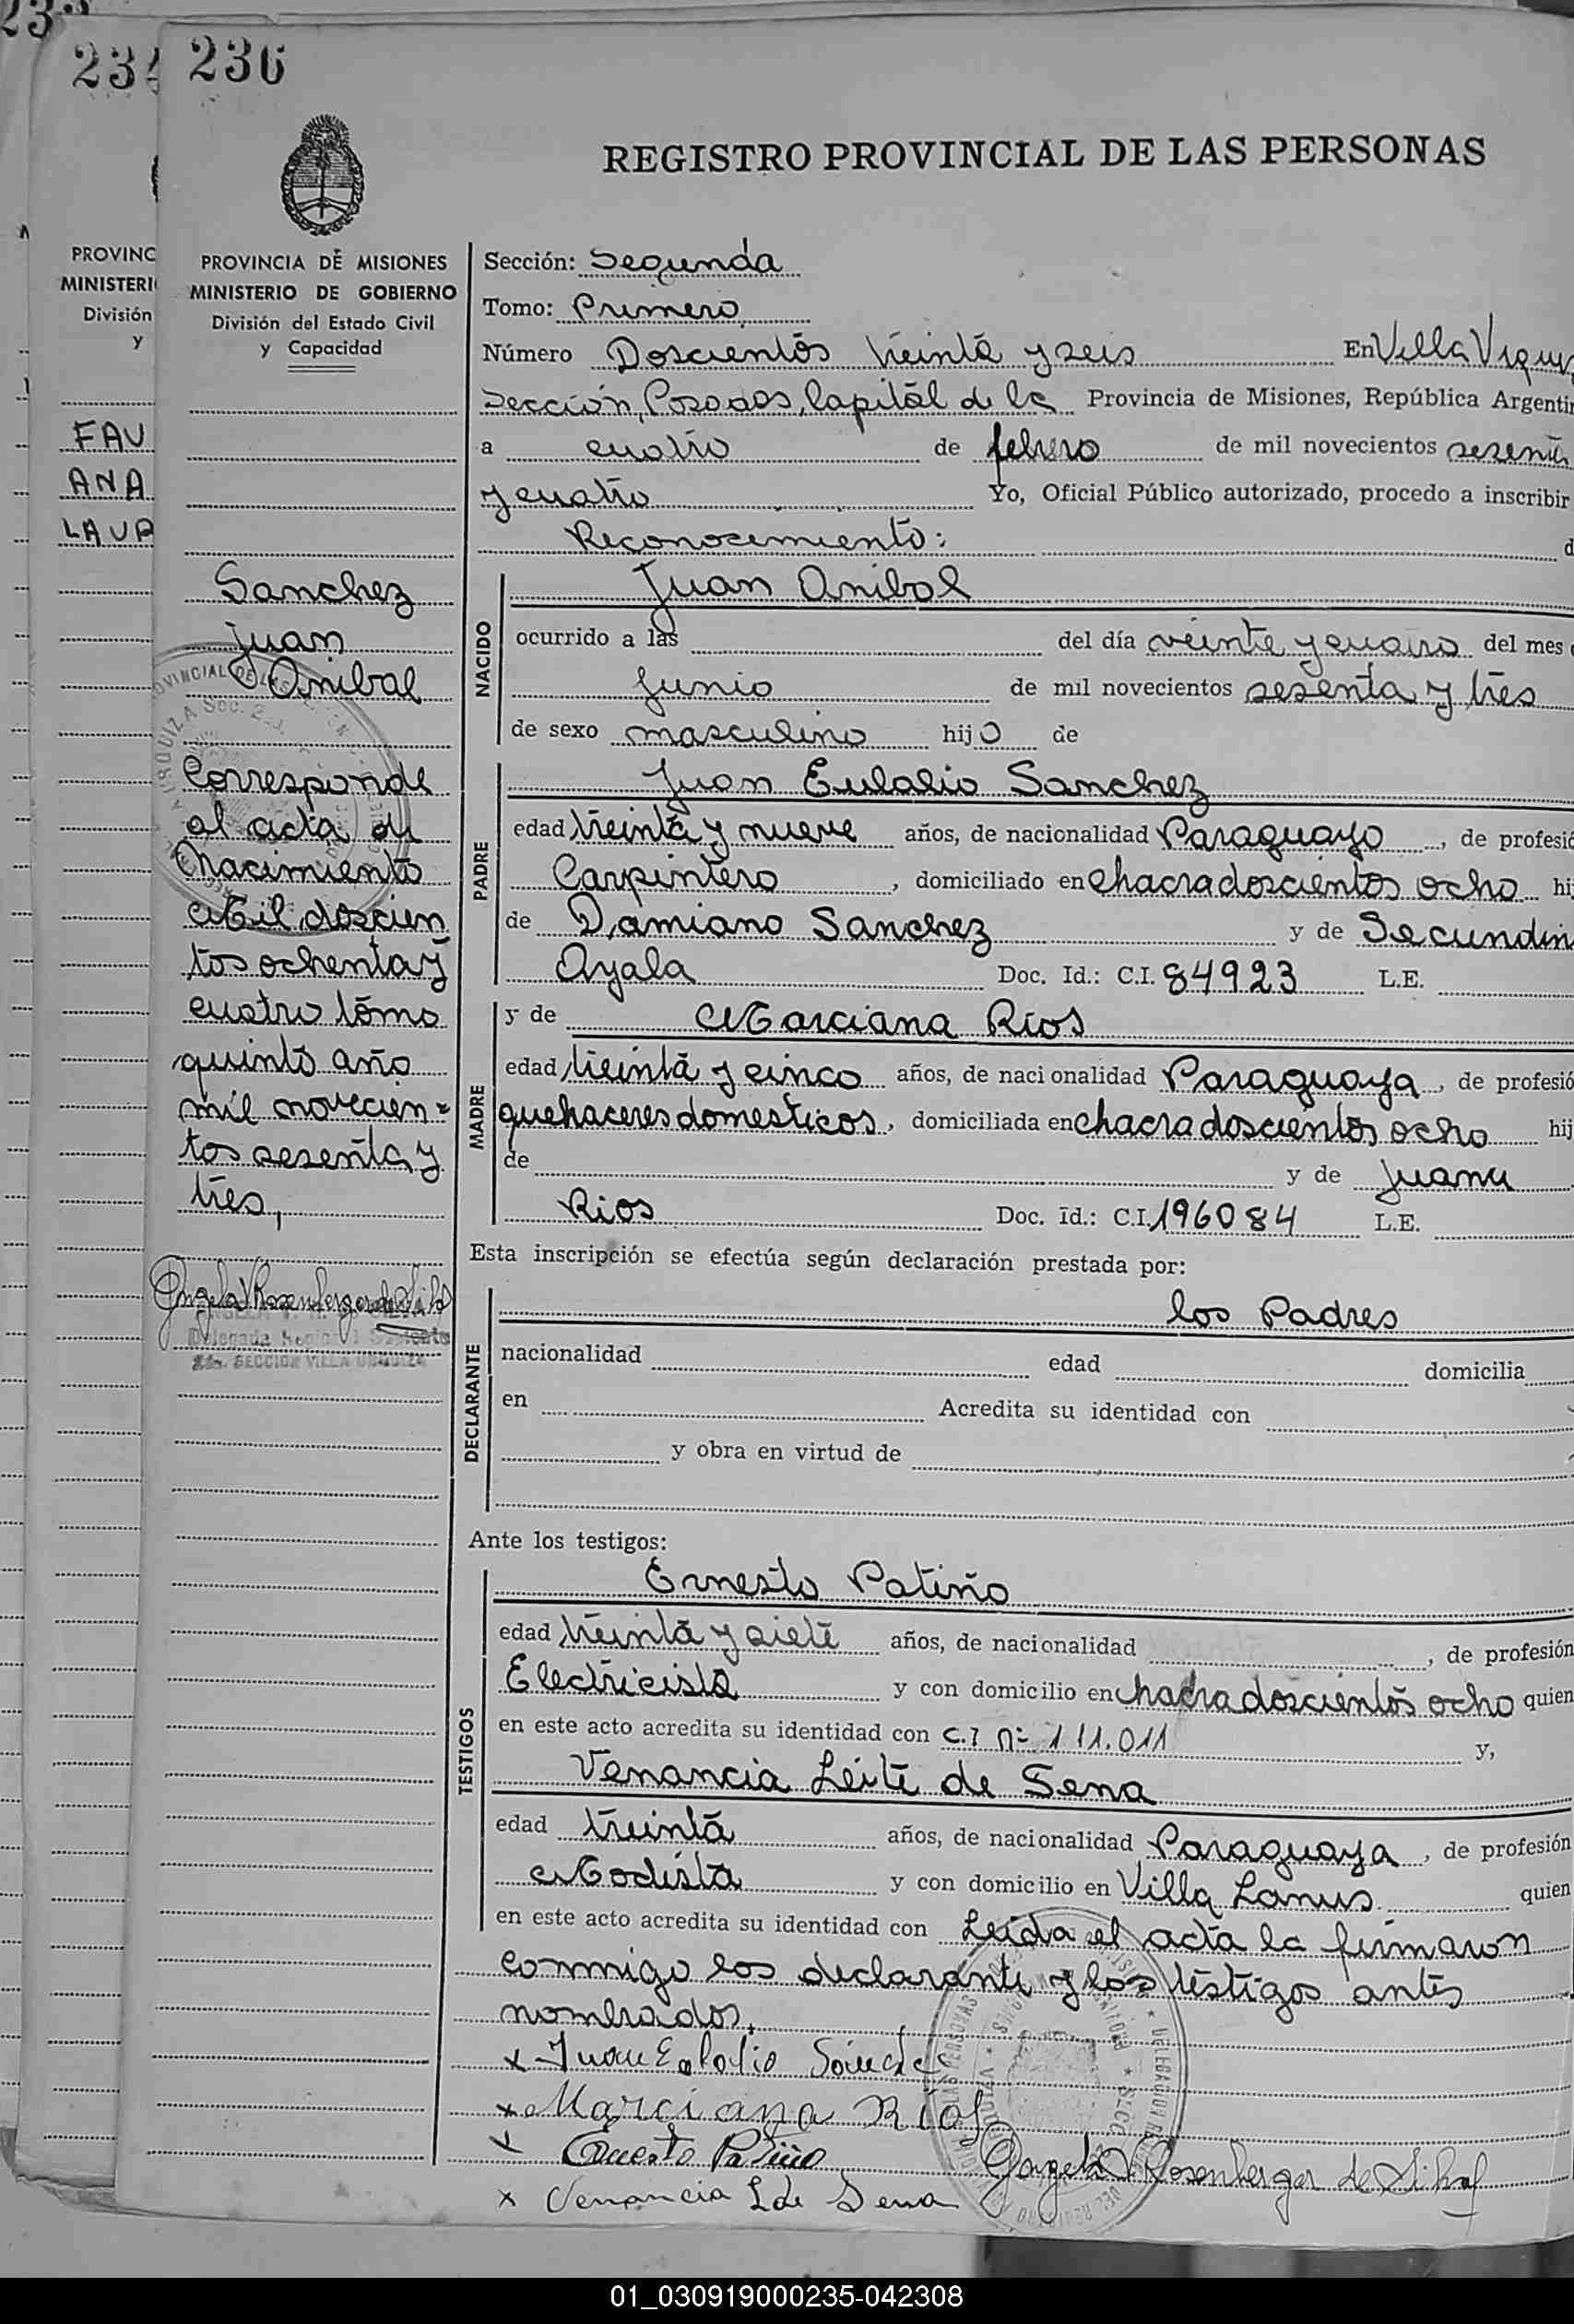 236
REGISTRO PROVINCIAL DE LAS PERSONAS
PROVINCIA DE MISIONES
MINISTERIO DE GOBIERNO
División del Estado Civil
y Capacidad
Sanchez
Juan
Anibal
Corresponde
al acta de
Nacimiento
Mil doscien
tos ochenta y
cuatro tomo
quinto año
mil novecien=
tos sesenta y
tres,
Sección: Segunda
Tomo: Primero
Número Doscientos treinta y seis En Villa
Sección, Posadas, Capital de la Provincia de Misiones, República Argentin
a cuatro de febrero de mil novecientos sesenta
y cuatro Yo, Oficial Público autorizado, procedo a inscribir
Reconocimiento:
NACIDO
Juan Anibal
ocurrido a las del día veinte y cuatro del mes
Junio de mil novecientos sesenta y tres
de sexo masculino hijo de
PADRE
Juan Eulalio Sanchez
edad treinta y nueve años, de nacionalidad Paraguayo, de profesió
Carpintero, domiciliado en chacra doscientos ocho hi
de Damiano Sanchez y de Secundin
Ayala Doc. Id.: C.I. 84923 L.E.
MADRE
y de Marciana Rios
edad treinta y cinco años, de nacionalidad Paraguaya, de profesió
quehaceres domesticos, domiciliada en chacra doscientos ocho hij
de y de Juana
Rios Doc. id.: C.I. 196084 L.E.
Esta inscripción se efectúa según declaración prestada por:
DECLARANTE
los Padres
nacionalidad edad domicilia
en Acredita su identidad con
y obra en virtud de
Ante los testigos:
TESTIGOS
Ernesto Patiño
edad treinta y siete años, de nacionalidad , de profesión
Electricista y con domicilio en chacra doscientos ocho quien
en este acto acredita su identidad con C.I nº 111.011 y,
Venancia Leite de Sena
edad treinta años, de nacionalidad Paraguaya, de profesión
Modista y con domicilio en Villa Lanus quien
en este acto acredita su identidad con Leida el acta la firmaron
conmigo los declarante y los testigos antes
nombrados.
x Juan Eulalio
x Marciana Rios
x Ernesto Patiño
Angela V. Rosenberger de
x Venancia L de Sena
01_030919000235-042308